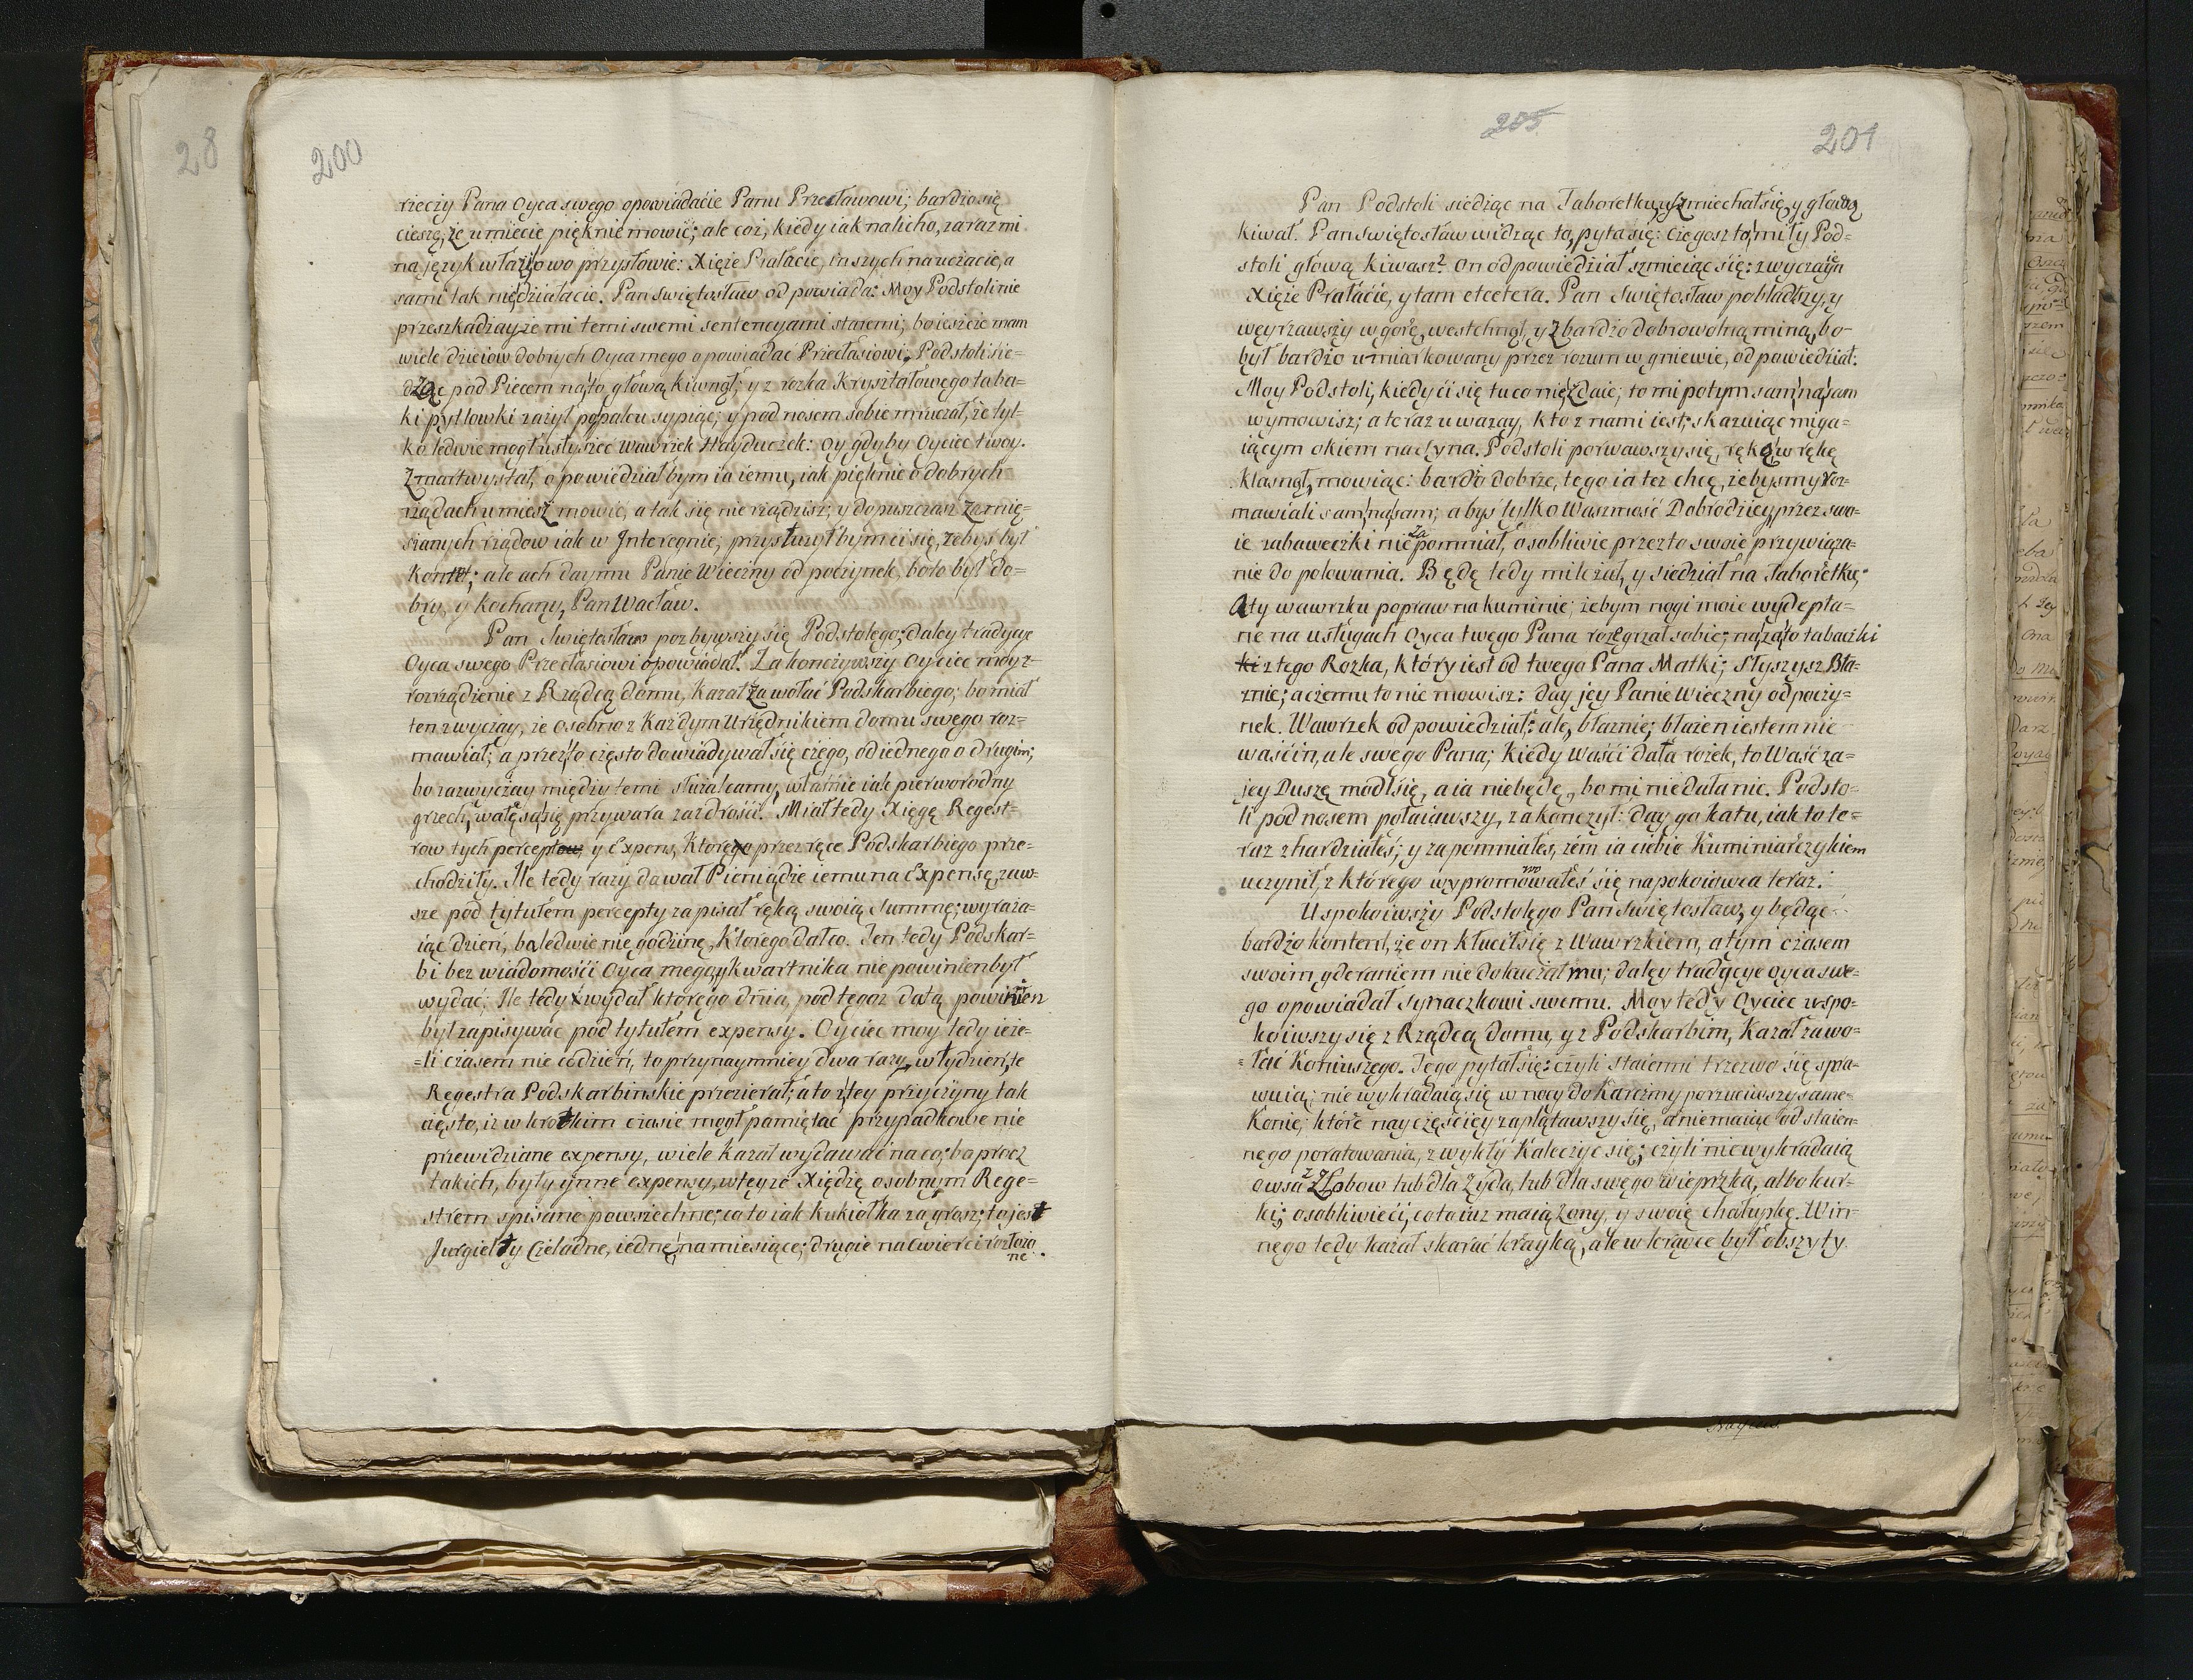 28
200
rzeczy Pana Oyca swego opowiadácie Panu Przecławowi; bardzo się
cieszę, że umiecie pięknie mowić; ale coż, kiedy iak na licho, zaraz mi
na język włazi owo przysłowie: Xięże Prałacie, inszych nauczacie, a
sami tak nie działacie. Pan Swiętosław odpowiada: Moy Podstoli nie
przeszkadzayże mi temi swemi sentencyami staremi; bo ieszcze mam
wiele dzieiow dobrych Oyca mego opowiadać Przecłasiowi. Podstoli sie=
dząc pod Piecem na to, głową kiwnął; y z rożka Kryształowego taba=
ki pytlowki zażył po palcu sypiąc; y pod nosem sobie mruczał, że tyl=
ko ledwie mogł usłyszeć Wawrzek Hayduczek: Oy gdyby Oyciec twoy.
Zmartwystał, opowiedział bym ia iemu, iak pięknie o dobrych
rządach umiesz mowić, a tak się nie rządzisz; y dopuszczasz zamię=
szanych rządow iak w Interegnie; przysłużył bym ci się, żebyś był
kontet; ale ach day mu Panie Wieczny odpoczynek, bo to był do=
bry, y kochany, Pan Wacław.
Pan Swiętosław pozbywszy się Podstolego; daley tradycye
Oyca swego Przecłasiowi opowiadał. Zakonczywszy Oyciec moy z
rozrządzenie z Rządcą domu, kazał zawołać Podskarbiego; bo miał
ten zwyczay, że osobno z każdym Urzędnikiem domu swego roz=
mawiał; a przez to często dowiadywał się czego, od iednego o drugim;
bo zazwyczay między temi służalcamy, własnie iak pierworodny
grzech, wałęsa się przywara zazdrości. Miał tedy Xięgę Regest=
row tych percept y Expens, ktore przez ręce Podskarbiego prze=
chodziły. Ile tedy razy dawał Pieniądze iemu na Expensę, zaw=
sze pod tytułem percepty zapisał ręką swoią Summę; wyraża=
iąc dzień, ba ledwie nie godzinę, ktorego dał co. Ten tedy Podskar=
bi bez wiadomości Oyca mego, y kwartnika nie powinien był
wydać; Ile tedy wydał ktorego dnia, pod tegoż datą powinien
był zapisywać pod tytułem expensy. Oyciec moy tedy ieże=
=li czasem nie codzień, to przynaymniey dwa razy w tydzień, te
Regestra Podskarbinskie przezierał; a to z tey przyczyny tak
często, iż w krotkim czasie mogł pamiętać przypadkowe nie
przewidziane expensy, wiele kazał wydawać na co; bo procz
takich, były ynne expensy, w teyże Xiędze osobnym Rege=
strem spisane powszechne; co to iak kukiołka za grosz; to jest
Jurgielty Czeladne, iedne na miesiące; drugie na cwierci rozłożo
ne.
205
201
Pan Podstoli siedząc na Taboretku, uszmiechał się, y głową
kiwał. Pan Swiętosław widząc to, pyta się: czegosz to, miły Pod=
stoli głową kiwasz? On odpowiedział szmieiąc się: zwyczayn
Xięże Prałacie, y tam etcetera. Pan Swiętosław pobladszy, y
weyrzawszy w gorę, westchnął, y z bardzo dobrowolną miną, bo
był bardzo umiarkowany przez rozum w gniewie, odpowiedział:
Moy Podstoli, kiedy ci się tu co nie zdaie; to mi potym sam na sam
wymowisz; a teraz uważay, kto z nami iest; skazuiąc miga=
iącym okiem na Syna. Podstoli porwawszy się, ręką w rękę
klasnął, mowiąc: bardo dobrze, tego ia też chcę, żebysmy roz=
mawiali sam na sam; abyś tylko Waszmość Dobrodziey, przez swo=
ie zabaweczki nie zapomniał, osobliwie przez to swoie przywiąza=
nie do polowania. Będę tedy milczał, y siedział na Taboretku;
A ty Wawrzku popraw na kuminie; żebym nogi moie wydepta=
ne na usługach Oyca twego Pana rozegrzał sobie; na za to tabaczki
ki z tego Rożka, który iest od twego Pana Matki; Słyszysz Bła=
znie; a czemu to nie mowisz: day jey Panie Wieczny odpoczy=
nek. Wawrzek odpowiedział: ale, błaznie; błazen iestem nie
waścin, ale swego Pana; kiedy Waści dała rożek, to Waść za=
jey Duszę modl się, a ia nie będę, bo mi nie dała nic. Podsto=
li pod nosem połaiawszy, zakonczył: day go katu, iak to te=
raz zhardziałeś; y zapomniałeś, żem ia ciebie Kuminiarczykiem
uczynił, z którego wypromowowałeś się na pokoiowca teraz.
Uspokoiwszy Podstolego Pan Swiętosław, y będąc
bardzo kontent, że on kłucił się z Wawrzkiem, a tym czasem
swoim gderaniem nie dokuczał mu; daley tradycye Oyca swe=
go opowiadał synaczkowi swemu. Moy tedy Oyciec uspo=
koiwszy się z Rządcą domu, y z Podskarbim, kazał zawo=
=łać Koniuszego. Tego pytał się: czyli staienni trzezwo się spra=
wuią; nie wykradaią się w nocy do Karczmy porzuciwszy same
Konie; które nayczęściey zaplątawszy się, a niemaiąc od staien=
nego poratowania, zwykły kaleczyć się; czyli nie wykradaią
owsa z Złobow lub dla Żyda, lub dla swego wieprzka, albo kur=
ki; osobliwie ci, co to iuż maią żony, y swoię chałupkę. Win=
nego tedy kazał skarać krayką, ale w krayce był obszyty